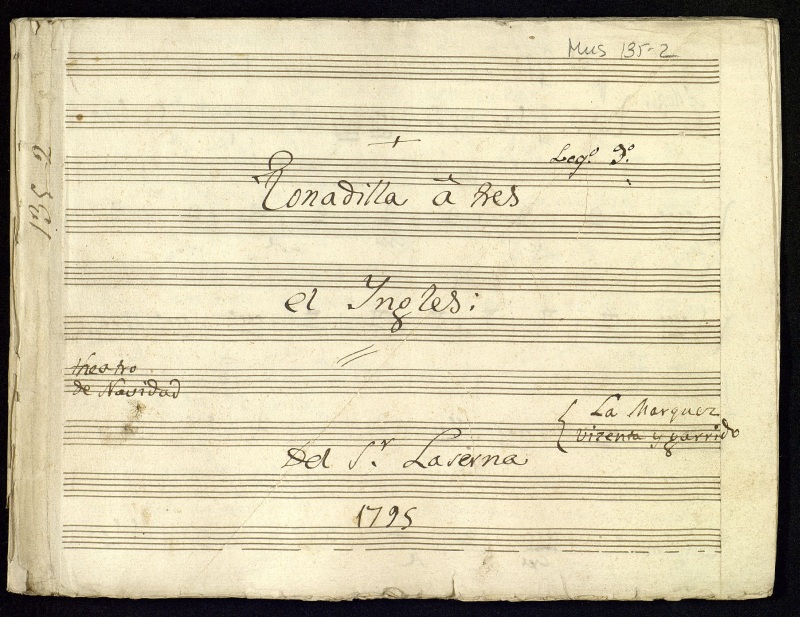 Mus 135-2
135-2
Legº. 3º.
Tonadilla â tres
el Yngles:
theatro
de Navidad
La Marquez
Vizenta y garrido
Del S.r Laserna
1795